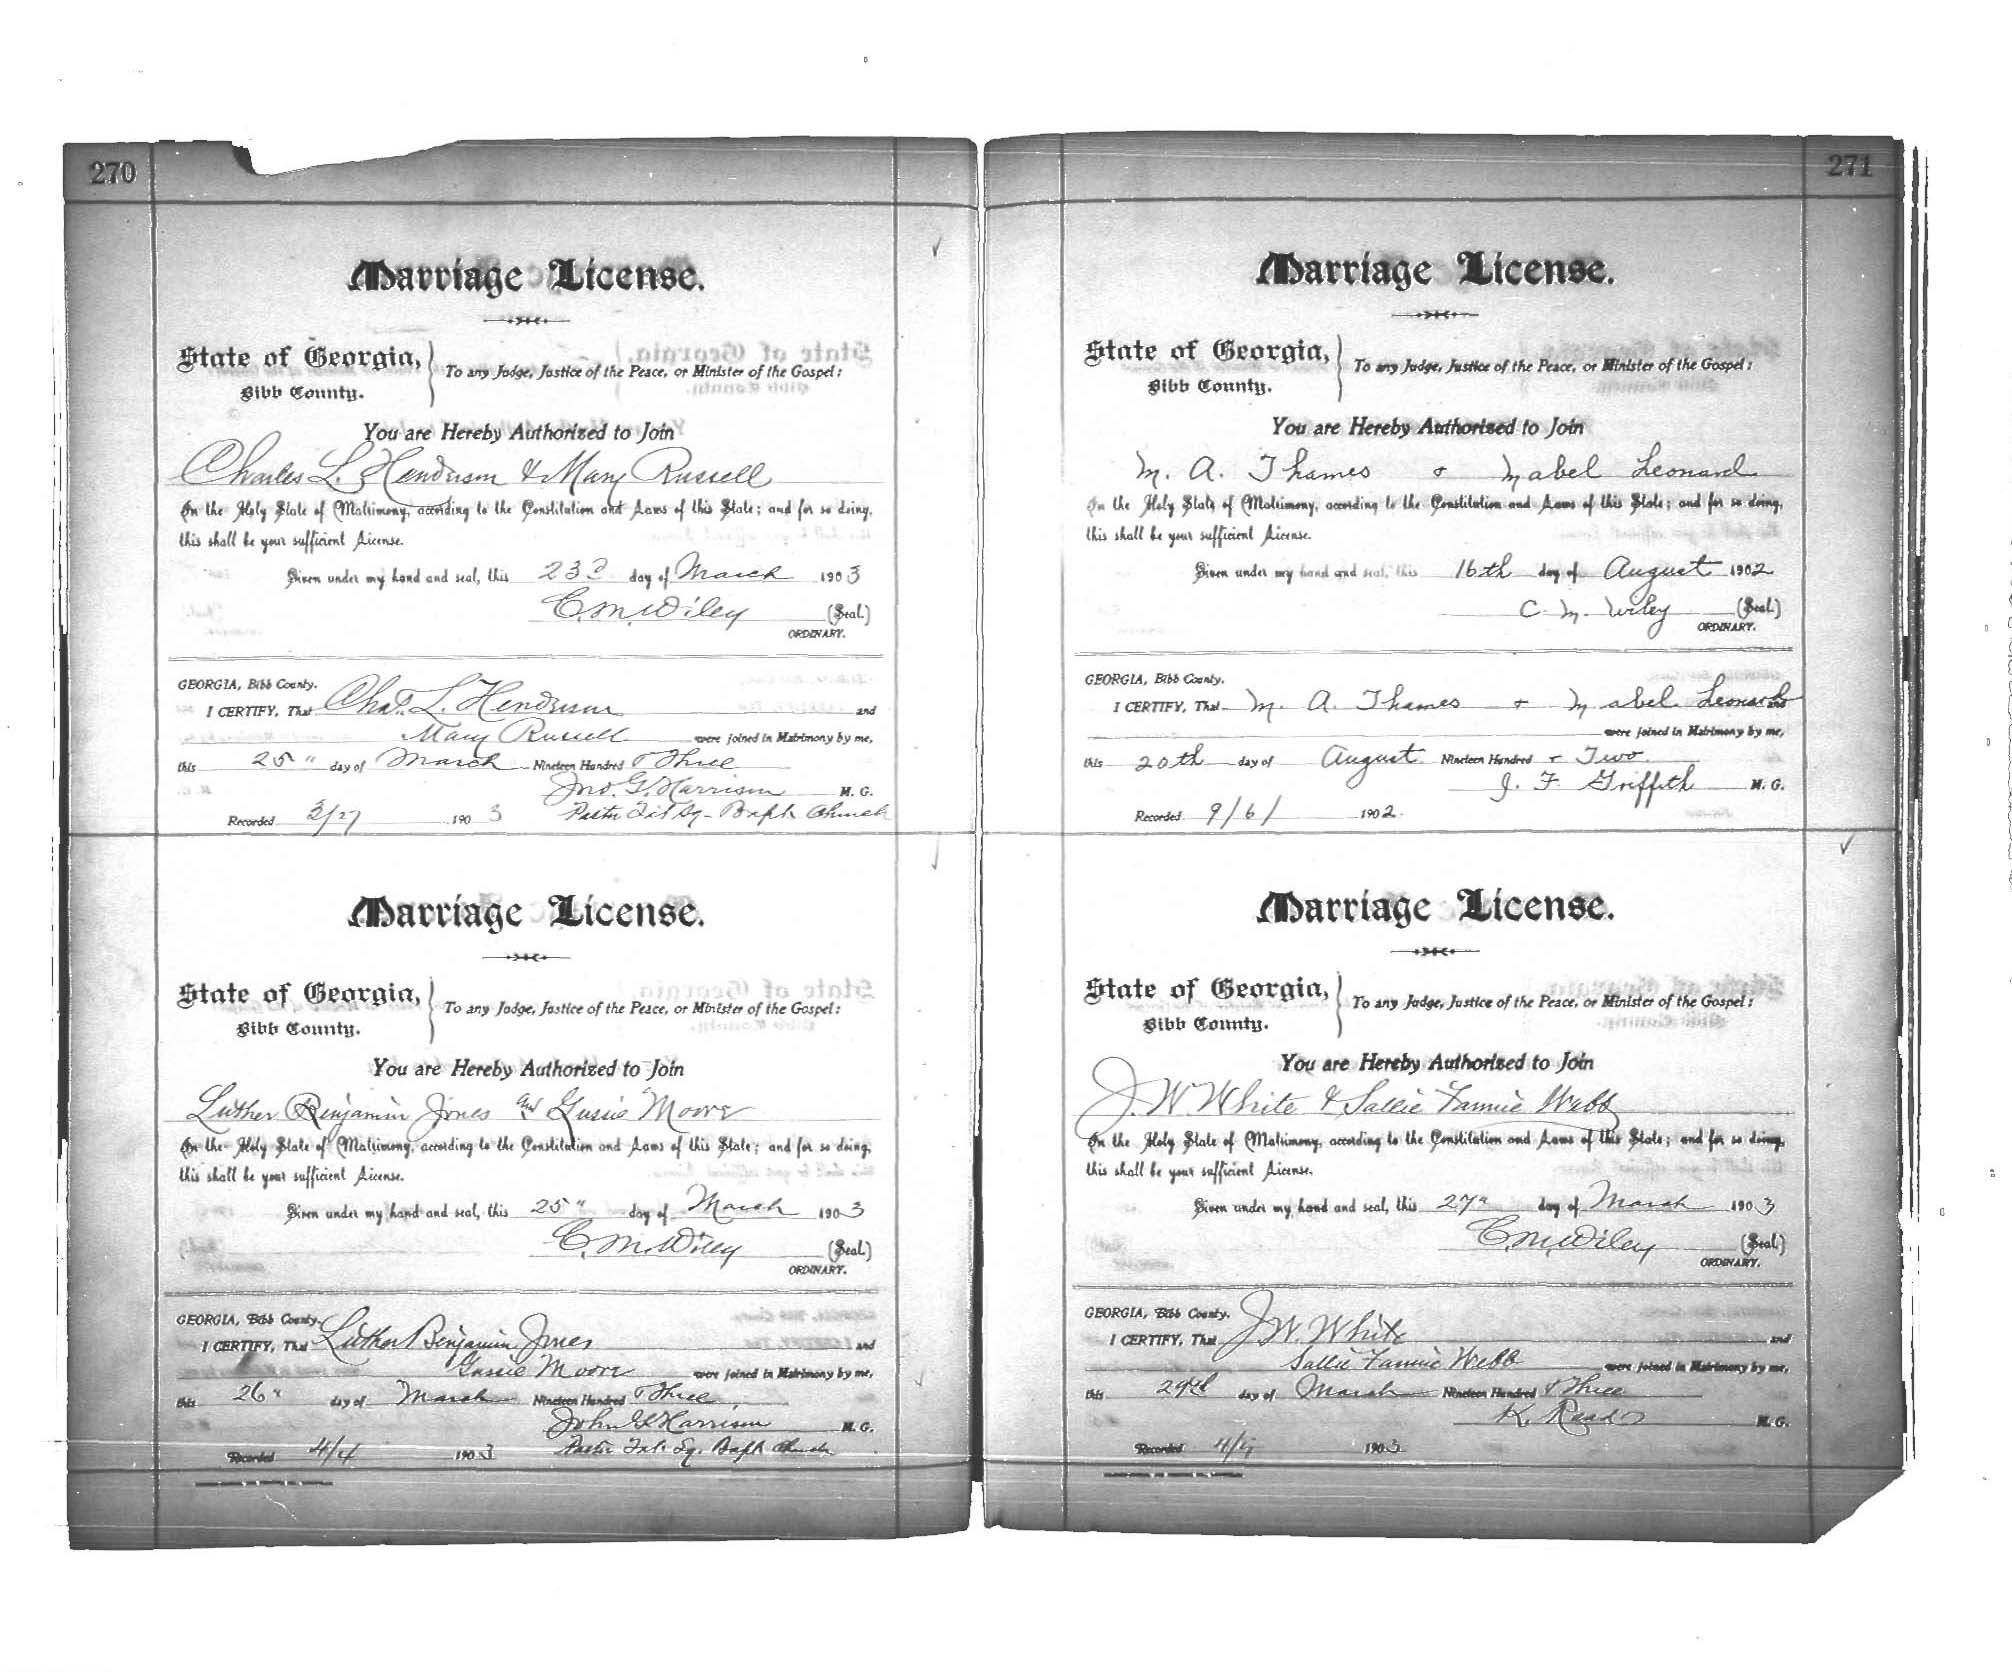 270
Marriage License.
State of Georgia,
Bibb County.
To any Judge, Justice of the Peace, or Minister of the Gospel:
You are Hereby Authorized to Join
Charles L. Henderson & Mary Russell
In the Holy State of Matrimony, according to the Constitution and Laws of this State; and for so doing,
this shall be your sufficient License.
Given under my hand and seal, this 23d day of March 1903
C. M. Wiley (Seal.)
ORDINARY.
GEORGIA, Bibb County.
I CERTIFY, That Chas. L. Henderson and
Mary Russell were joined in Matrimony by me,
this 25" day of March Nineteen Hundred & Three
Jno. G. Harrison M. G.
Recorded 3/27 1903 Pastor Tat Sq- Bapt. Church
Marriage License.
State of Georgia,
Bibb County.
To any Judge, Justice of the Peace, or Minister of the Gospel:
You are Hereby Authorized to Join
Luther Benjamin Jones and Gussie Moore
In the Holy State of Matrimony, according to the Constitution and Laws of this State; and for so doing,
this shall be your sufficient License.
Given under my hand and seal, this 25" day of March 1903
C. M. Wiley (Seal.)
ORDINARY.
GEORGIA, Bibb County.
I CERTIFY, That Luther Benjamin Jones and
Gussie Moore were joined in Matrimony by me,
this 26" day of March Nineteen Hundred & Three
John G. Harrison M. G.
Recorded 4/4 1903 Pastor Tat. Sq. Bapt. Church
271
Marriage License.
State of Georgia,
Bibb County.
To any Judge, Justice of the Peace, or Minister of the Gospel:
You are Hereby Authorized to Join
M. A. Thames & Mabel Leonard
In the Holy State of Matrimony, according to the Constitution and Laws of this State; and for so doing,
this shall be your sufficient License.
Given under my hand and seal, this 16th day of August 1902
C. M. Wiley (Seal.)
ORDINARY.
GEORGIA, Bibb County.
I CERTIFY, That M. A. Thames & Mabel Leonard and
were joined in Matrimony by me,
this 20th day of August Nineteen Hundred & Two.
J. F. Griffith M. G.
Recorded 9/6/ 1902.
Marriage License.
State of Georgia,
Bibb County.
To any Judge, Justice of the Peace, or Minister of the Gospel:
You are Hereby Authorized to Join
J. W. White & Sallie Fannie Webb
In the Holy State of Matrimony, according to the Constitution and Laws of this State; and for so doing,
this shall be your sufficient License.
Given under my hand and seal, this 27" day of March 1903
C. M. Wiley (Seal.)
ORDINARY.
GEORGIA, Bibb County.
I CERTIFY, That J. W. White and
Sallie Fannie Webb were joined in Matrimony by me,
this 29th day of March Nineteen Hundred & Three
K. Read M. G.
Recorded 1903